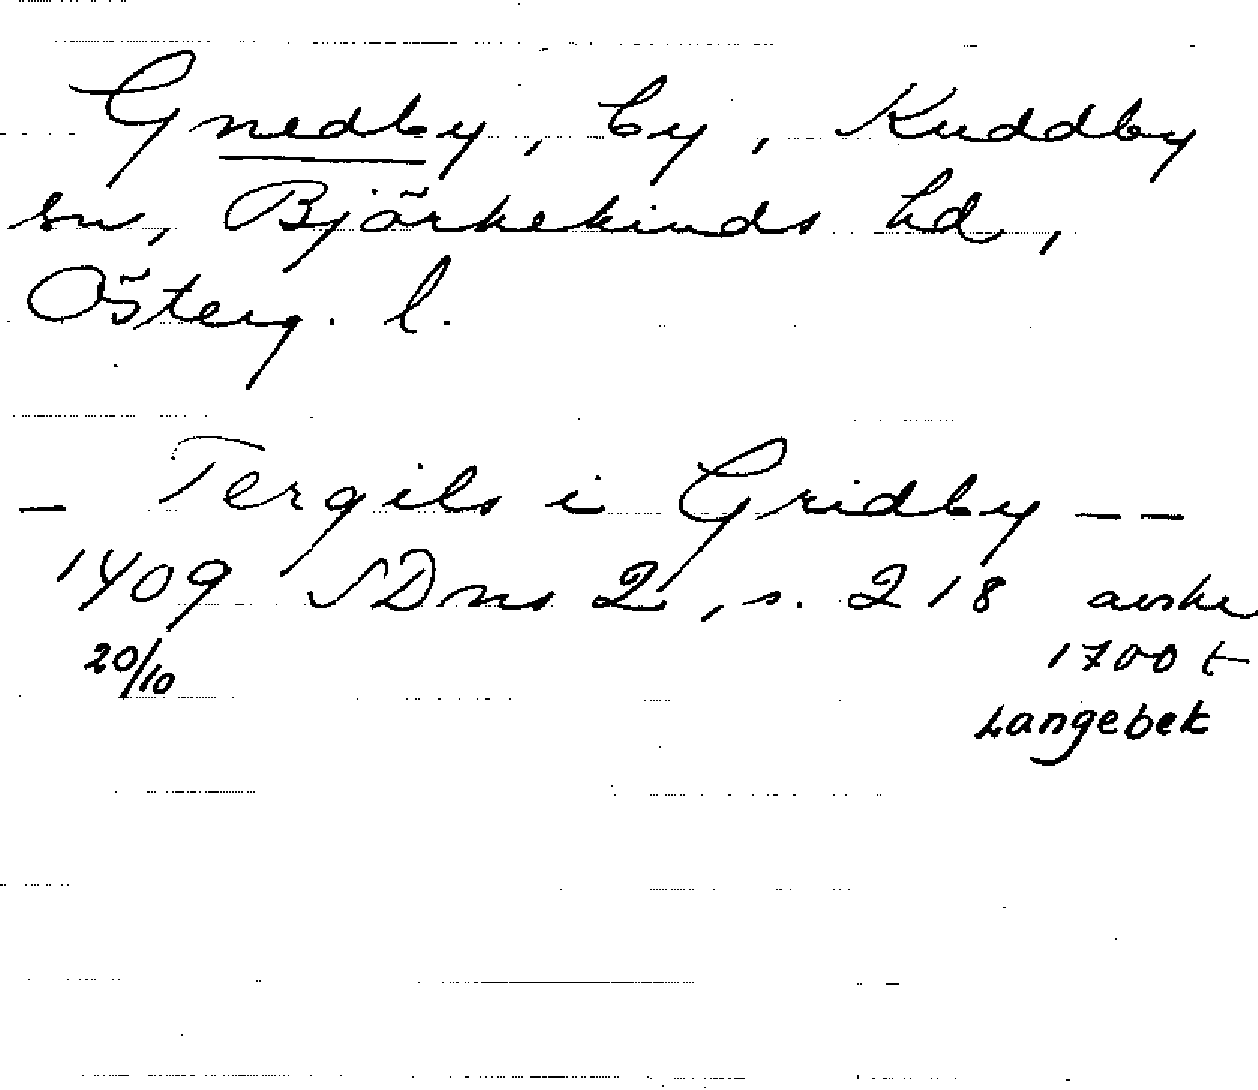 Gnedby, by, Kuddby
sn, Björkekinds hd,
Österg. l.
— Tergils i Gridby — —
1409 SDns 2, s. 218 avskr
20/10 1700 t
Langebek